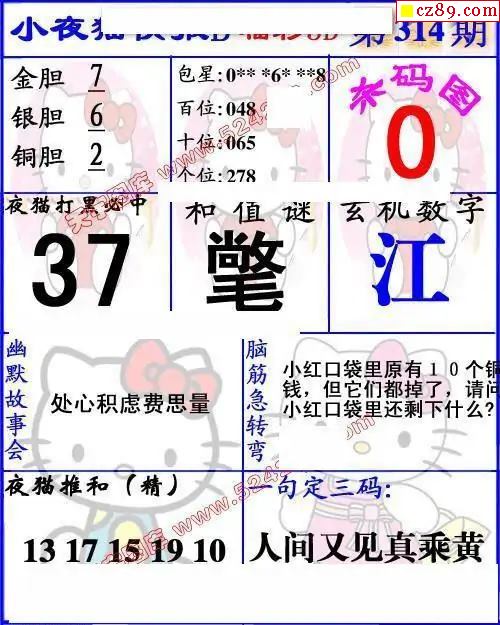 cz89.com
小夜猫
第314期
金胆 7
银胆 6
铜胆 2
包星:0** *6* **8
百位:048
十位:065
个位:278
杀码图
0
夜猫打黑必中
37
和值谜
氅
玄机数字
江
幽默故事会
处心积虑费思量
脑筋急转弯
小红口袋里原有10个铜
钱，但它们都掉了，请问
小红口袋里还剩下什么?
夜猫推和（精）
13 17 15 19 10
一句定三码:
人间又见真乘黄